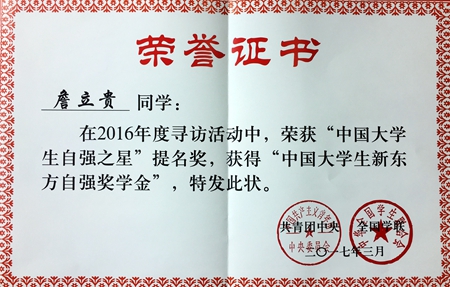 荣誉证书
詹立贵 同学：
在2016年度寻访活动中，荣获“中国大学
生自强之星”提名奖，获得“中国大学生新东
方自强奖学金”，特发此状。
共青团中央 全国学联
中央委员会
二〇一七年三月